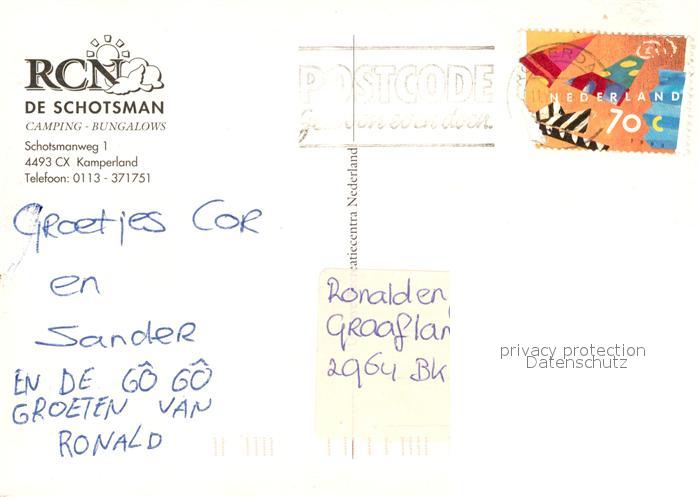 RCN
DE SCHOTSMAN
CAMPING - BUNGALOWS
Schotsmanweg 1
4493 CX Kamperland
Telefoon: 0113 - 371751
POSTCODE
NEDERLAND
70 c
Groetjes Cor
en
Sander
EN DE GÔ GÔ
GROETEN VAN
RONALD
reatiecentra Nederland
Ronald en
Graaflan
2964 BK
privacy protection
Datenschutz